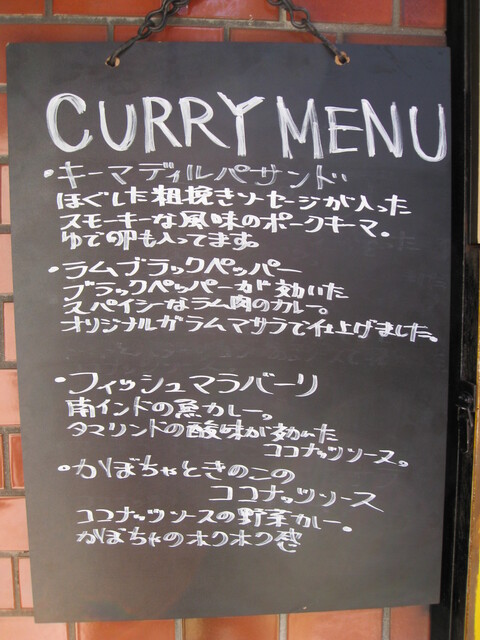 CURRY MENU
・キーマディルパサンド
ほぐした粗挽きソーセージが入った
スモーキーな風味のポークキーマ。
ゆで卵も入ってます。
・ラムブラックペッパー
ブラックペッパーが効いた
スパイシーなラム肉のカレー。
オリジナルガラムマサラで仕上げました。
・フィッシュマラバーリ
南インドの魚カレー。
タマリンドの酸味が効いた
ココナッツソース。
・かぼちゃときのこの
ココナッツソース
ココナッツソースの野菜カレー。
かぼちゃのホクホク感